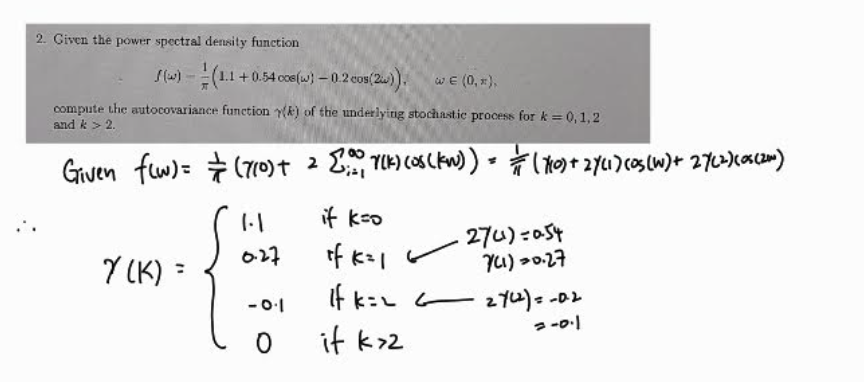 2. Given the power spectral density function
f(ω) = 1/π (1.1 + 0.54 cos(ω) − 0.2 cos(2ω)), ω ∈ (0, π),
compute the autocovariance function γ(k) of the underlying stochastic process for k = 0, 1, 2
and k > 2.
Given f(ω) = 1/π (γ(0) + 2 Σ_{i=1}^{∞} γ(k) cos(kω)) = 1/π (γ(0) + 2γ(1) cos(ω) + 2γ(2) cos(2ω))
∴ γ(k) = {
1.1 if k=0
0.27 if k=1 ← 2γ(1) = 0.54
γ(1) = 0.27
-0.1 if k=2 ← 2γ(2) = -0.2
= -0.1
0 if k>2